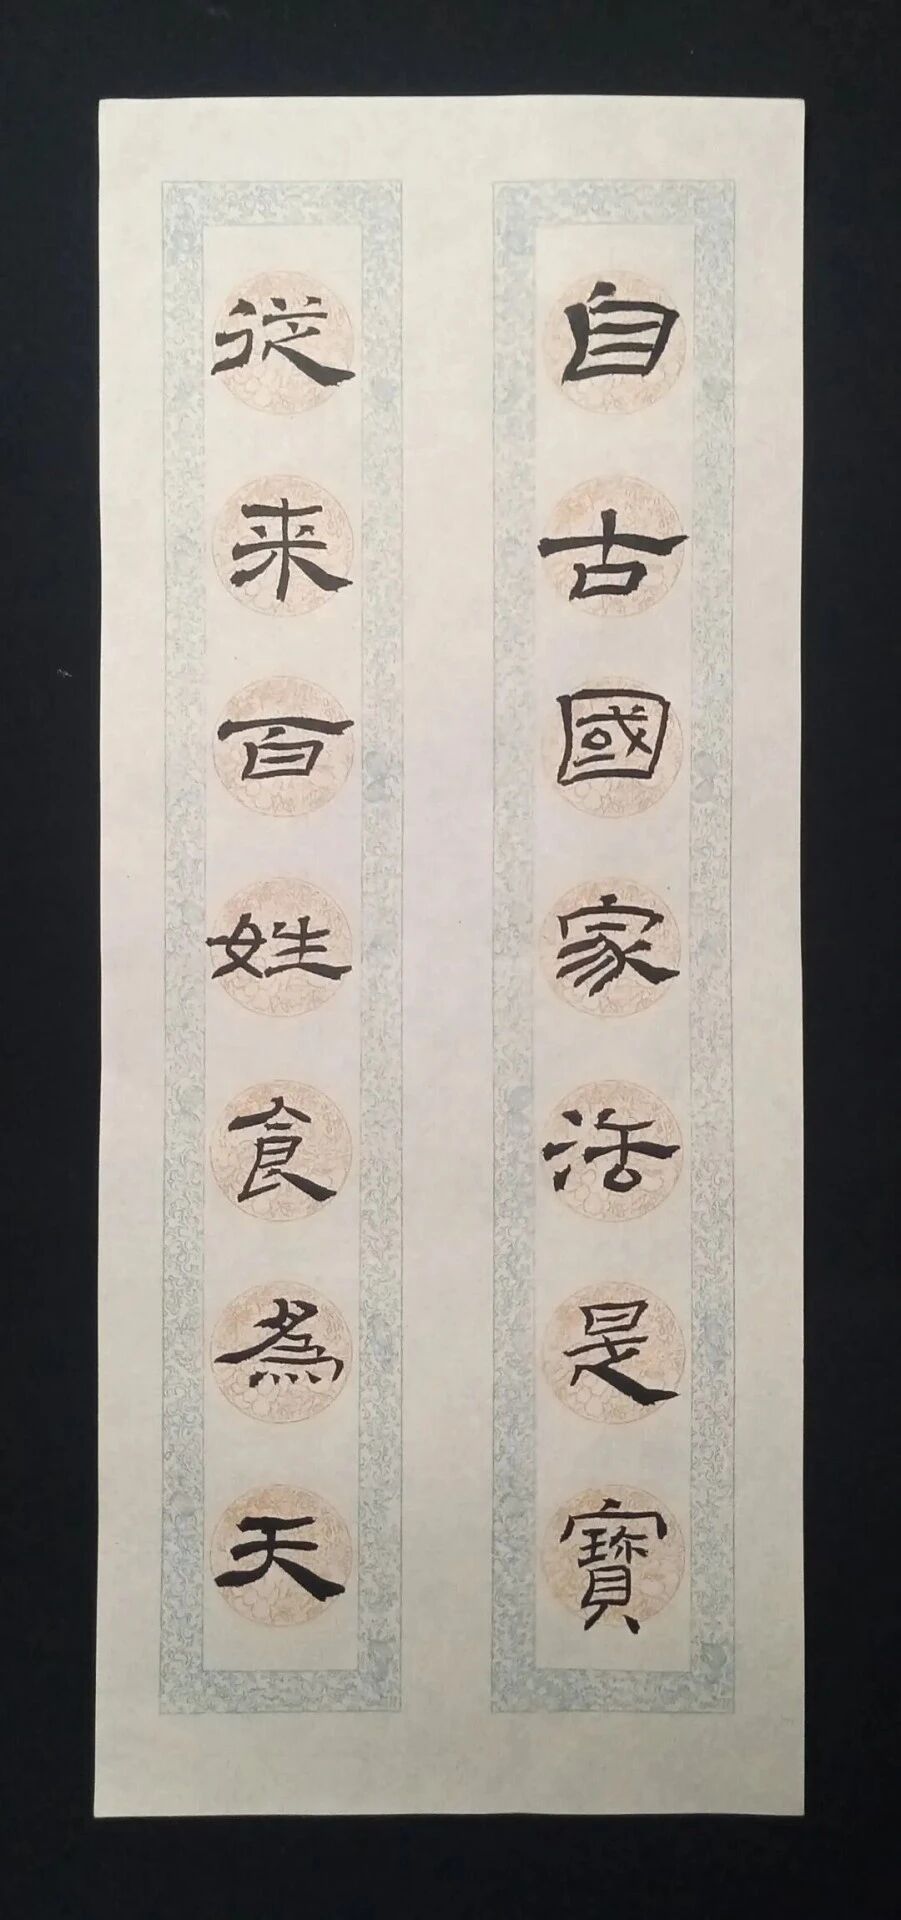 自古國家活是寶
從来百姓食為天